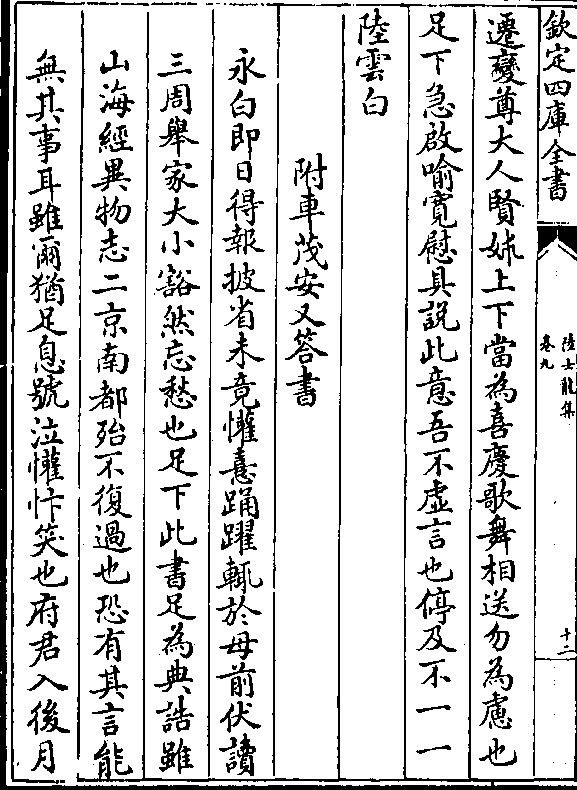 欽定四庫全書
陸士龍集
卷九
十二
遷變尊大人賢姊上下當為喜慶歌舞相送勿為慮也
足下急啟喻寛慰具説此意吾不虚言也停及不一一
陸雲白
附車茂安又答書
永白即日得報披省未竟懽憙踊躍輒於母前伏讀
三周舉家大小豁然忘愁也足下此書足為典誥雖
山海經異物志二京南都殆不復過也恐有其言能
無其事耳雖爾猶足息號泣懽忭笑也府君入後月